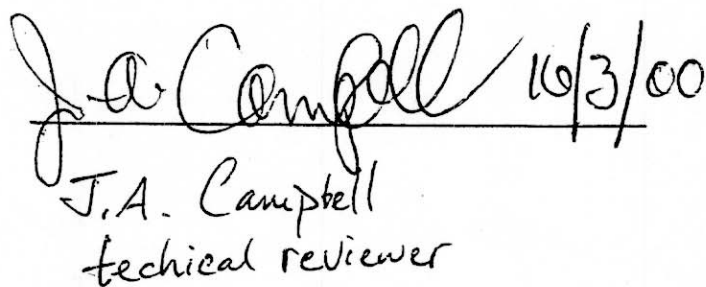 J. A. Campbell 10/3/00
J.A. Campbell
techical reviewer